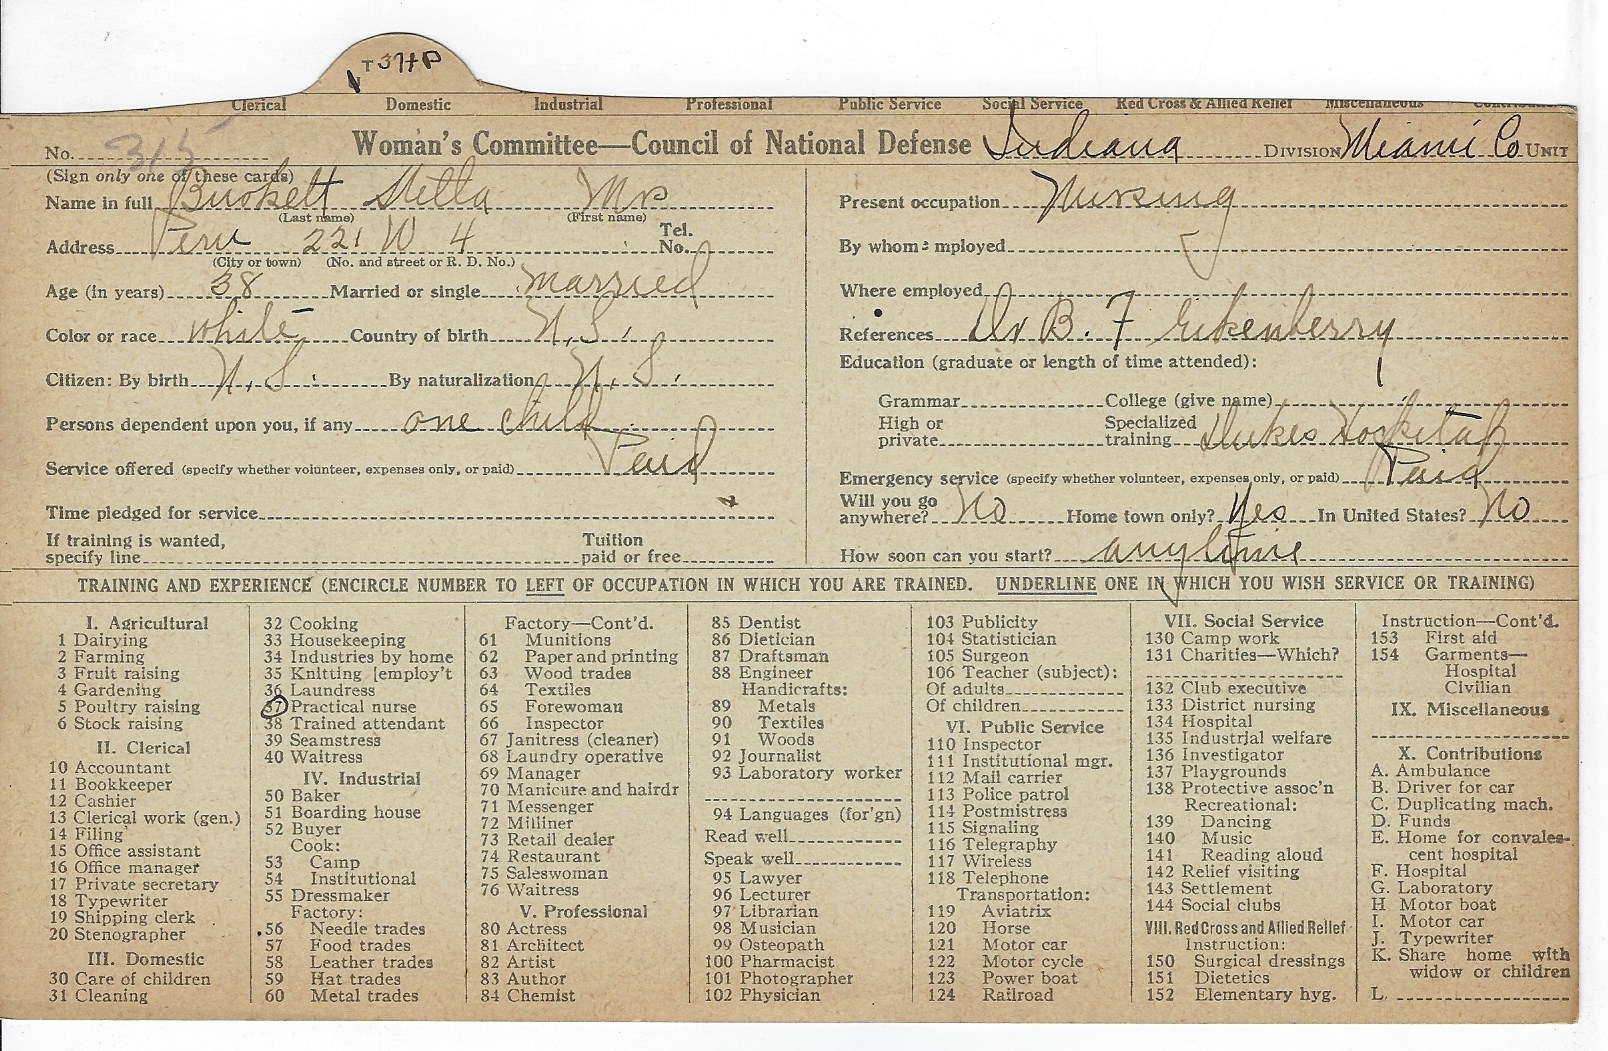 T 37 P
Clerical Domestic Industrial Professional Public Service Social Service Red Cross & Allied Relief Miscellaneous
No. 315 Woman's Committee—Council of National Defense Indiana DIVISION Miami Co UNIT
(Sign only one of these cards)
Name in full Burkett Stella Mrs
(Last name) (First name)
Address Peru 221 W 4 Tel. No.
(City or town) (No. and street or R. D. No.)
Age (in years) 38 Married or single married
Color or race white Country of birth U.S.
Citizen: By birth U.S. By naturalization U.S.
Persons dependent upon you, if any one child
Service offered (specify whether volunteer, expenses only, or paid) Paid
Time pledged for service
If training is wanted, specify line Tuition paid or free
Present occupation Nursing
By whom employed
Where employed
References Dr B. F Eikenberry
Education (graduate or length of time attended):
Grammar College (give name)
High or private Specialized training Dukes Hospital
Emergency service (specify whether volunteer, expenses only, or paid) Paid
Will you go anywhere? No Home town only? Yes In United States? No
How soon can you start? anytime
TRAINING AND EXPERIENCE (ENCIRCLE NUMBER TO LEFT OF OCCUPATION IN WHICH YOU ARE TRAINED. UNDERLINE ONE IN WHICH YOU WISH SERVICE OR TRAINING)
I. Agricultural
1 Dairying
2 Farming
3 Fruit raising
4 Gardening
5 Poultry raising
6 Stock raising
II. Clerical
10 Accountant
11 Bookkeeper
12 Cashier
13 Clerical work (gen.)
14 Filing
15 Office assistant
16 Office manager
17 Private secretary
18 Typewriter
19 Shipping clerk
20 Stenographer
III. Domestic
30 Care of children
31 Cleaning
32 Cooking
33 Housekeeping
34 Industries by home
35 Knitting [employ't
36 Laundress
37 Practical nurse
38 Trained attendant
39 Seamstress
40 Waitress
IV. Industrial
50 Baker
51 Boarding house
52 Buyer
Cook:
53 Camp
54 Institutional
55 Dressmaker
Factory:
56 Needle trades
57 Food trades
58 Leather trades
59 Hat trades
60 Metal trades
Factory—Cont'd.
61 Munitions
62 Paper and printing
63 Wood trades
64 Textiles
65 Forewoman
66 Inspector
67 Janitress (cleaner)
68 Laundry operative
69 Manager
70 Manicure and hairdr
71 Messenger
72 Milliner
73 Retail dealer
74 Restaurant
75 Saleswoman
76 Waitress
V. Professional
80 Actress
81 Architect
82 Artist
83 Author
84 Chemist
85 Dentist
86 Dietician
87 Draftsman
88 Engineer
Handicrafts:
89 Metals
90 Textiles
91 Woods
92 Journalist
93 Laboratory worker
94 Languages (for'gn)
Read well
Speak well
95 Lawyer
96 Lecturer
97 Librarian
98 Musician
99 Osteopath
100 Pharmacist
101 Photographer
102 Physician
103 Publicity
104 Statistician
105 Surgeon
106 Teacher (subject):
Of adults
Of children
VI. Public Service
110 Inspector
111 Institutional mgr.
112 Mail carrier
113 Police patrol
114 Postmistress
115 Signaling
116 Telegraphy
117 Wireless
118 Telephone
Transportation:
119 Aviatrix
120 Horse
121 Motor car
122 Motor cycle
123 Power boat
124 Railroad
VII. Social Service
130 Camp work
131 Charities—Which?
132 Club executive
133 District nursing
134 Hospital
135 Industrial welfare
136 Investigator
137 Playgrounds
138 Protective assoc'n
Recreational:
139 Dancing
140 Music
141 Reading aloud
142 Relief visiting
143 Settlement
144 Social clubs
VIII. Red Cross and Allied Relief
Instruction:
150 Surgical dressings
151 Dietetics
152 Elementary hyg.
Instruction—Cont'd.
153 First aid
154 Garments—
Hospital
Civilian
IX. Miscellaneous
X. Contributions
A. Ambulance
B. Driver for car
C. Duplicating mach.
D. Funds
E. Home for convales-
cent hospital
F. Hospital
G. Laboratory
H. Motor boat
I. Motor car
J. Typewriter
K. Share home with
widow or children
L.